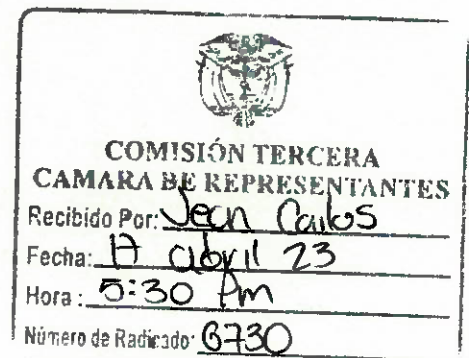 COMISIÓN TERCERA
CAMARA DE REPRESENTANTES
Recibido Por: Jean Carlos
Fecha: 17 abril 23
Hora: 5:30 Pm
Número de Radicado: 6730